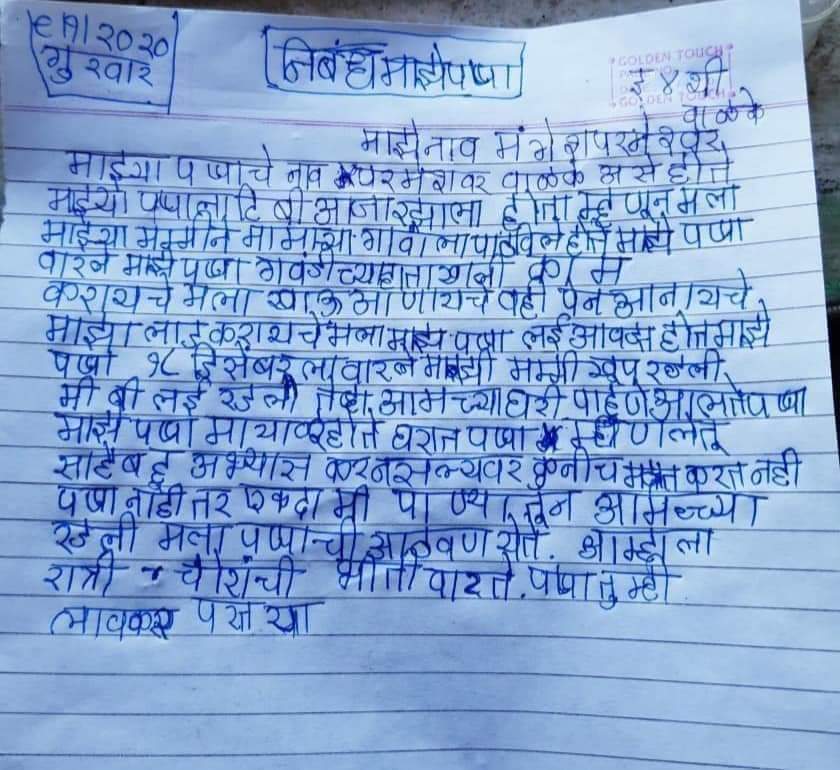 2020
गुरवार
निबंध माझे पप्पा
GOLDEN TOUCH
इ ४ थी
वाळके
माझे नाव मंगेश परमेश्वर
माझ्या पप्पाचे नाव परमेशवर वाळके असे होते
माझ्या पप्पाला टि बी आजार झाला होता म्हणून मला
माझ्या मम्मीने मामाच्या गावाला पाठविले होते माझे पप्पा
वारले माझे पप्पा गवंडीच्या हाताखाली काम
करायचे मला खाऊ आणायचे वही पेन आनायचे
माझा लाड करायचे मला माझे पप्पा लई आवडत होत माझे
पप्पा १८ डिसेंबर ला वारले माझी मम्मी खुप रडली
मी बी लई रडलो तेव्हा आमच्या घरी पाहुणे आलते पप्पा
माझे पप्पा होते घरात पप्पा म्हणले तू
साहेब हू अभ्यास कर नसल्यवर कुनीच मदत करत नही
पप्पा नाही तर एकदा मी आमच्या
रडली मला पप्पाची आठवण येते. आम्हाला
रात्री चोरांची भीती वाटते. पप्पा तुम्ही
लावकर परत या